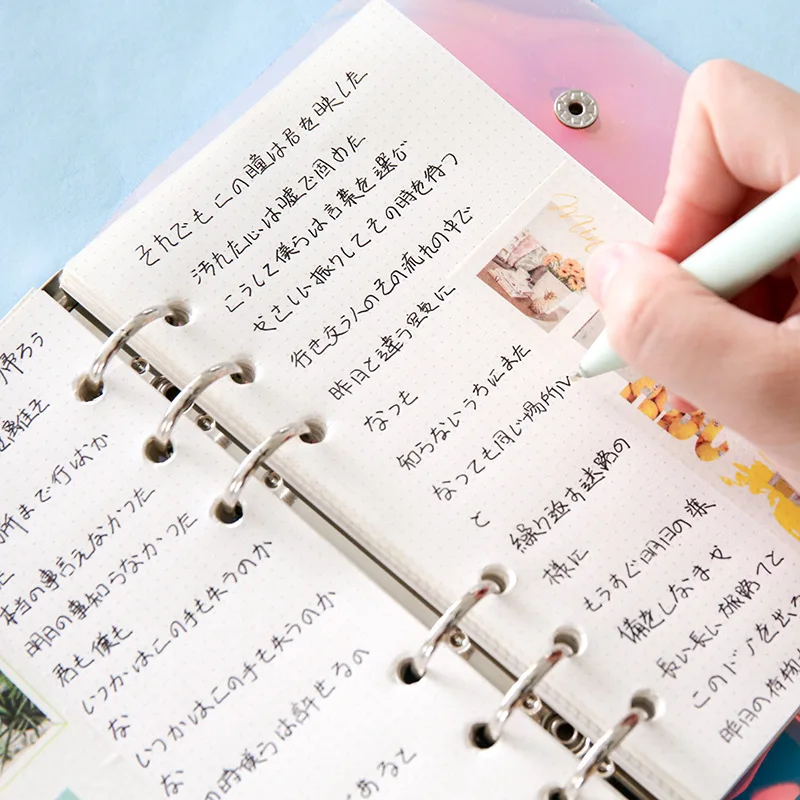 帰ろう
離佳子
所まで行けばか
本当の事言えなかった
明日の事知らなかった
君も僕も
いつかはこの手も失うのか
な
いつかはこの手も失うのか
な
の時僕らは許せるの
あると
それでもこの瞳は君を映した
汚れた心は嘘で固めた
こうして僕らは言葉を選ぶ
やさしい振りしてその時を待つ
行き交う人のその流れの中で
昨日と違う空気に
なっも
知らないうちにまた
なっても同じ場所に
と
繰り返す迷路の
様に
もうすぐ明日の準
備をしなませ
長い長い旅路って
このドアを出る
昨日の荷物
Min